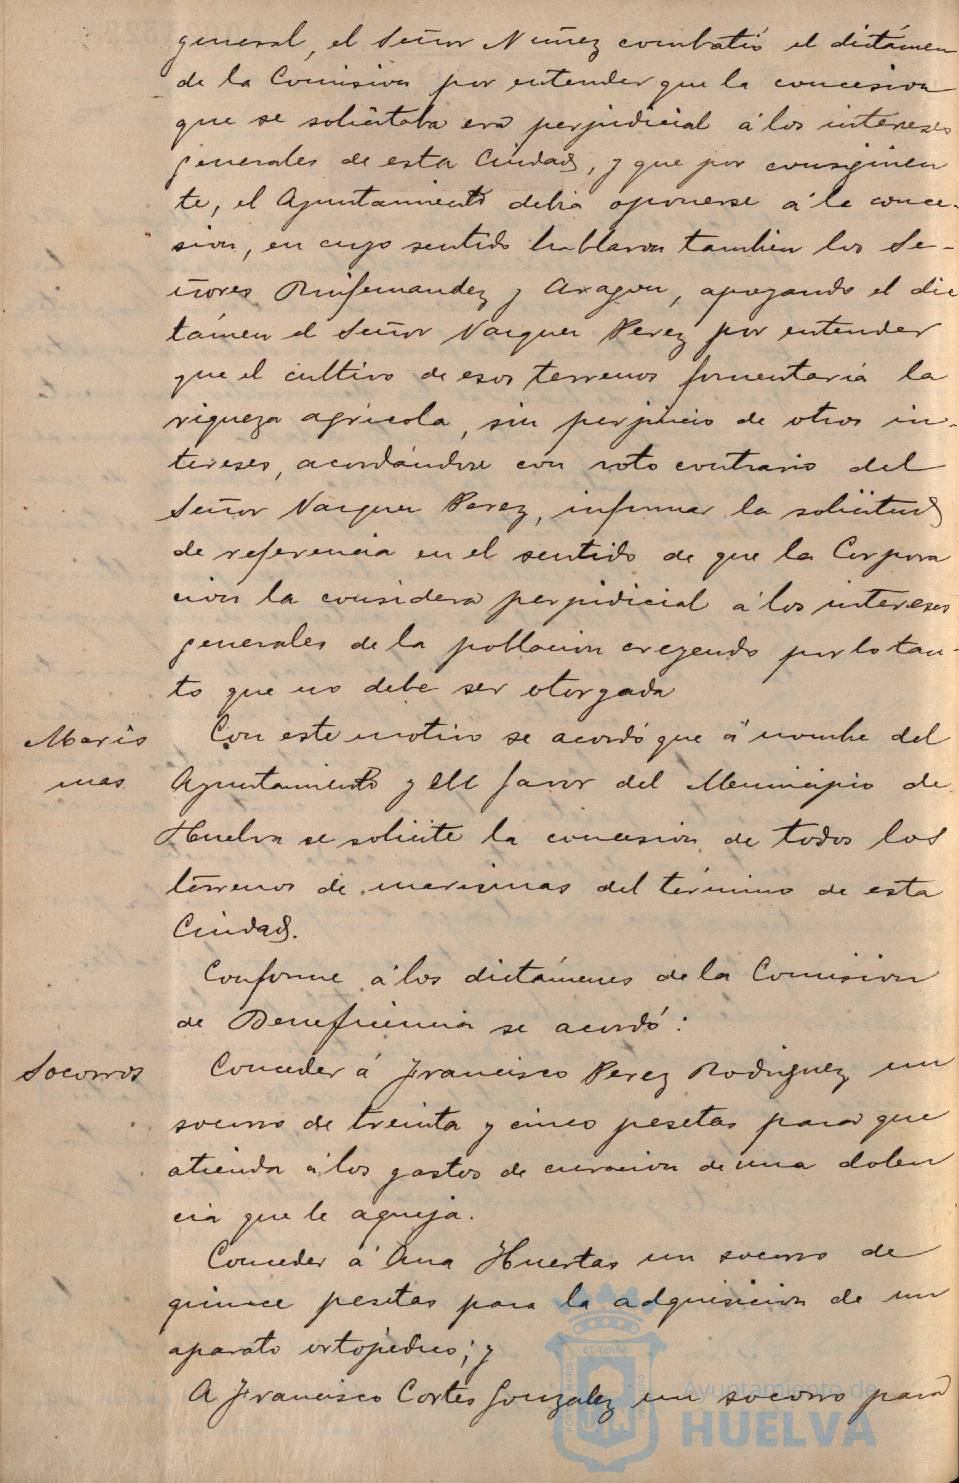 general, el Señor Nuñez combatió el dictámen
de la Comision por entender que la concesion
que se solicitaba era perjudicial á los intereses
generales de esta Ciudad, y que por consiguien
te, el Ayuntamiento debia oponerse á la conce-
sion, en cuyo sentido hablaron tambien los Se-
ñores Ruifernandez y Aragon, apoyando el dic
támen el Señor Vazquez Perez por entender
que el cultivo de esos terrenos fomentaria la
riqueza agrícola, sin perjuicio de otros in-
tereses, acordándose con voto contrario del
Señor Vazquez Perez, informar la solicitud
de referencia en el sentido de que la Corpora
cion la considera perjudicial á los intereses
generales de la poblacion creyendo por lo tan-
to que no debe ser otorgada
Maris
mas
Con este motivo se acordó que á nombre del
Ayuntamiento y en favor del Municipio de
Huelva se solicite la concesion de todos los
terrenos de marismas del término de esta
Ciudad.
Conforme á los dictámenes de la Comision
de Beneficencia se acordó:
Socorros
Conceder á Francisco Perez Rodriguez un
socorro de treinta y cinco pesetas para que
atienda á los gastos de curacion de una dolen
cia que le aqueja.
Conceder á Ana Huertas un socorro de
quince pesetas para la adquisicion de un
aparato ortopédico; y
A Francisco Cortes Gonzalez un socorro para
Ayuntamiento de
HUELVA